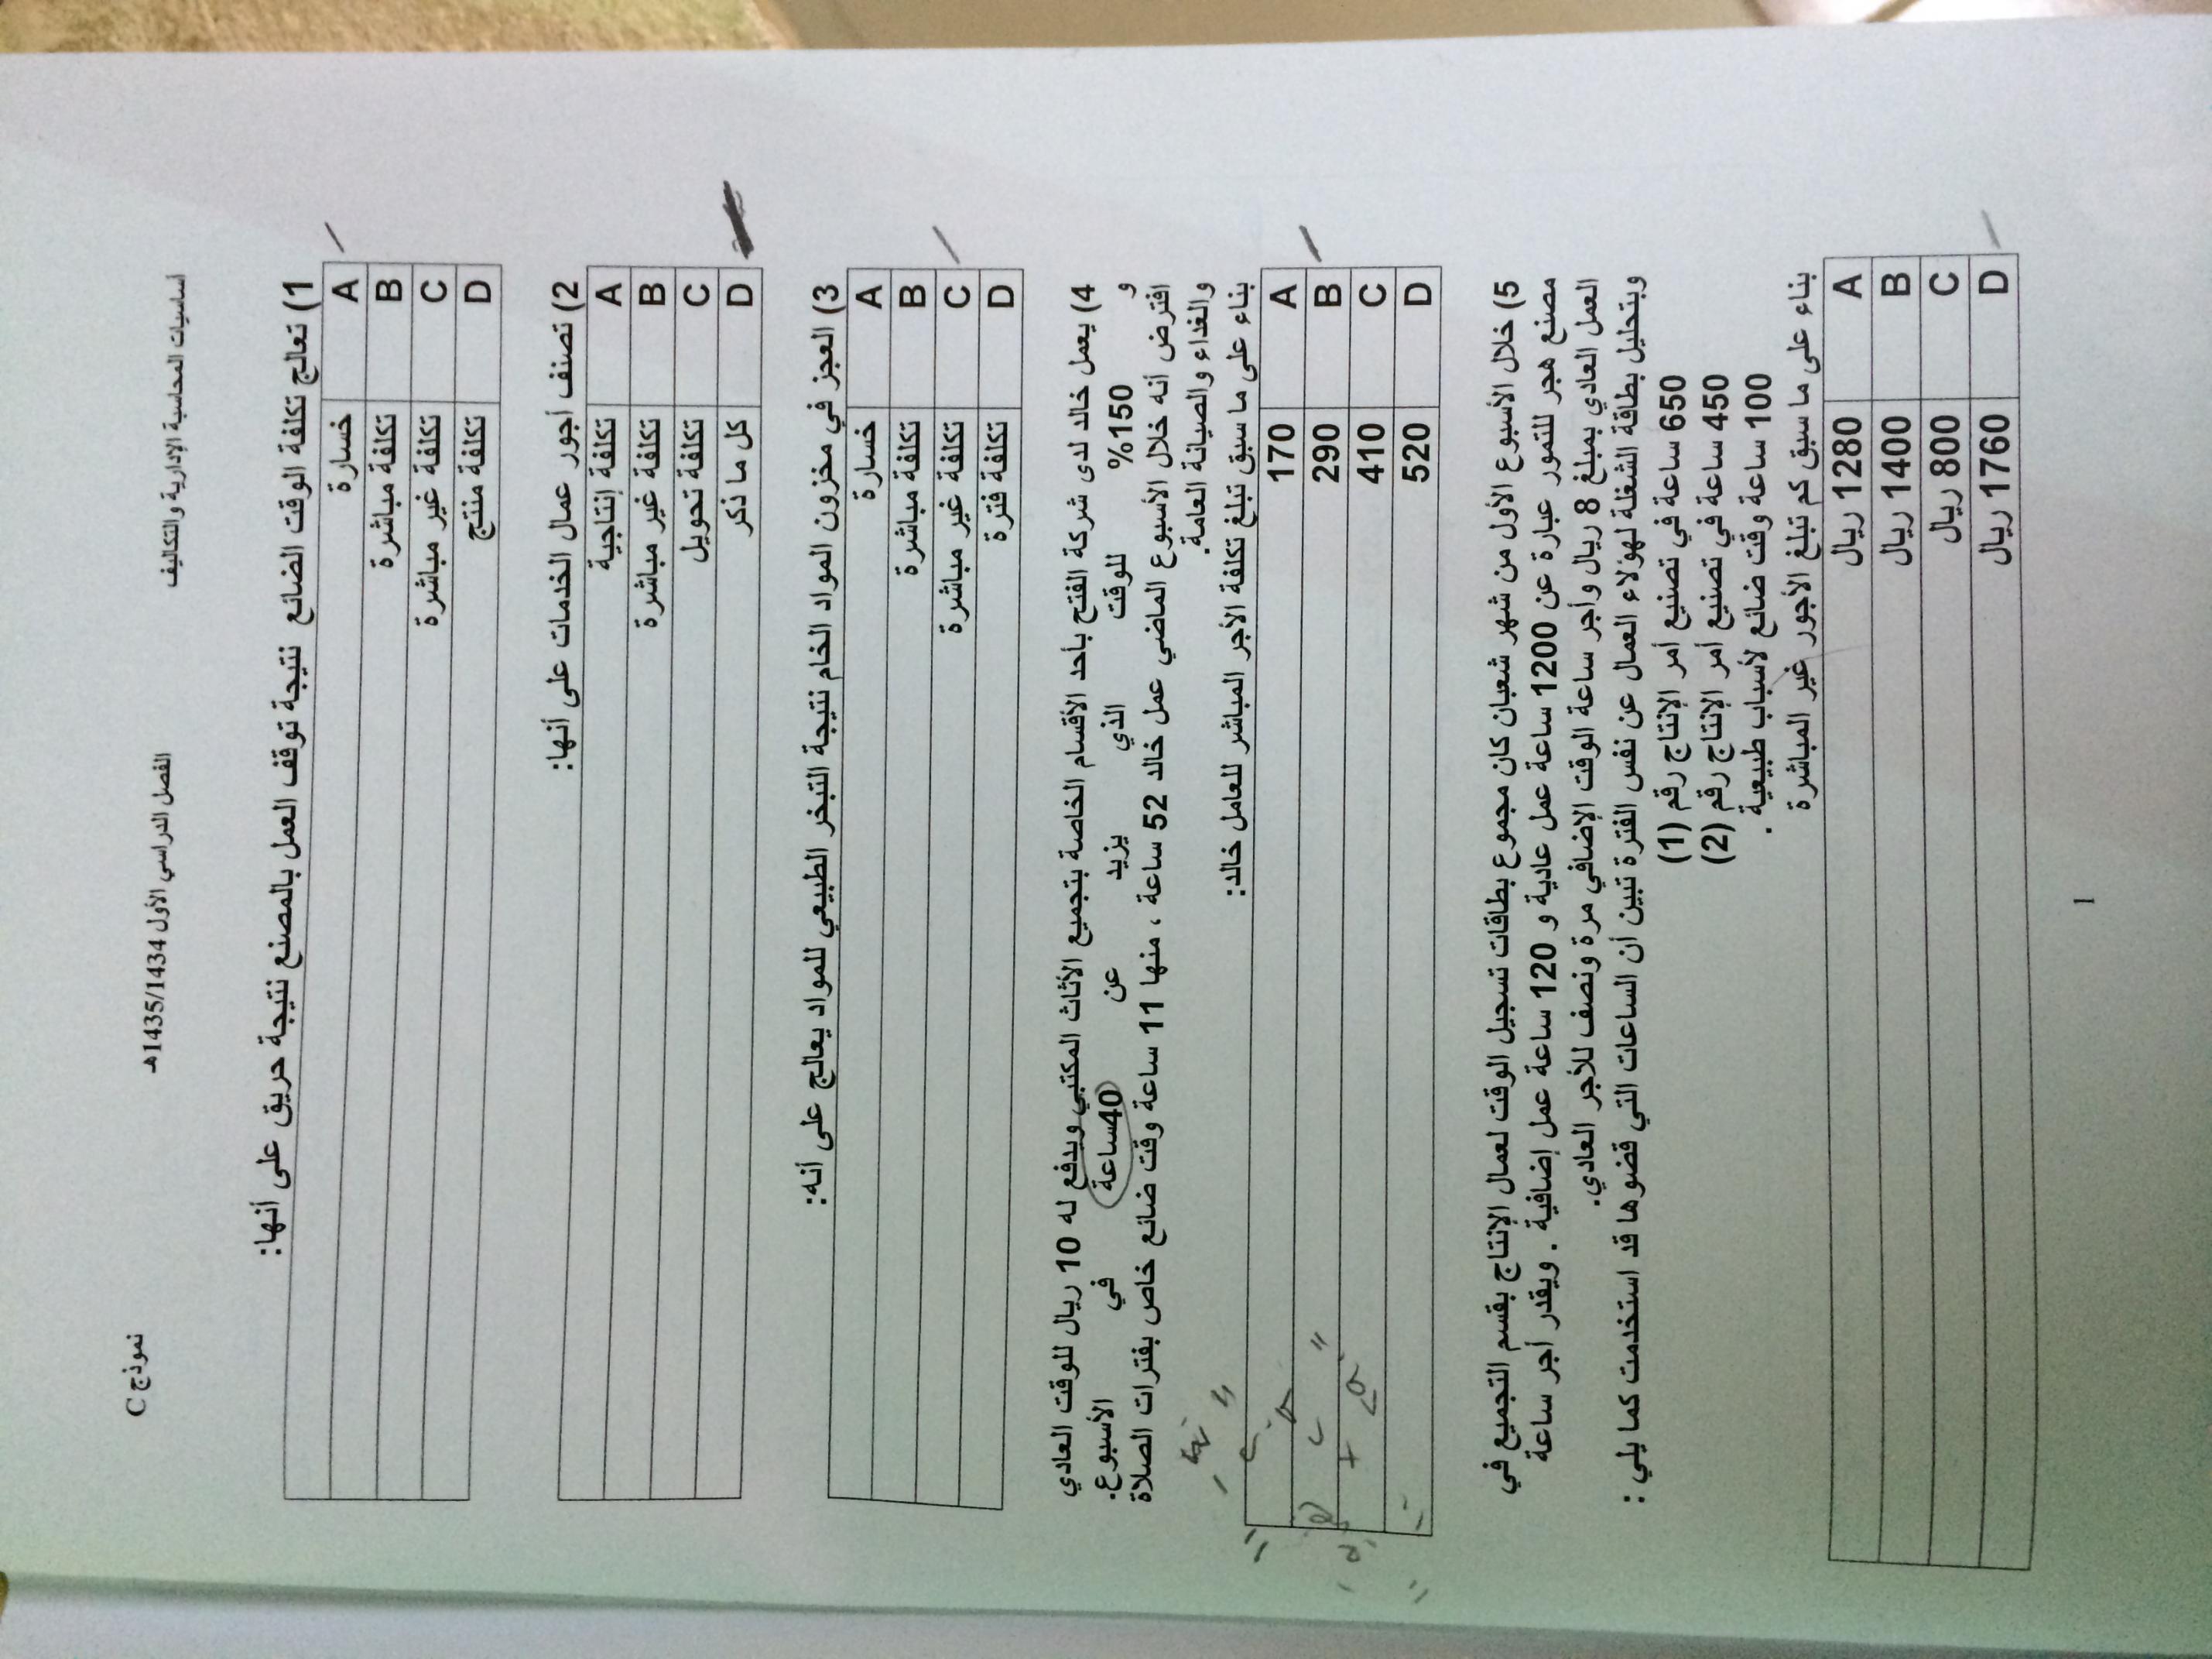 نموذج C الفصل الدراسي الأول 1435/1434هـ أساسيات المحاسبة الإدارية والتكاليف
1) تعالج تكلفة الوقت الضائع نتيجة توقف العمل بالمصنع نتيجة حريق على أنها:
A خسارة
B تكلفة مباشرة
C تكلفة غير مباشرة
D تكلفة منتج
2) تصنف أجور عمال الخدمات على أنها:
A تكلفة إنتاجية
B تكلفة غير مباشرة
C تكلفة تحويل
D كل ما ذكر
3) العجز في مخزون المواد الخام نتيجة التبخر الطبيعي للمواد يعالج على أنه:
A خسارة
B تكلفة مباشرة
C تكلفة غير مباشرة
D تكلفة فترة
4) يعمل خالد لدى شركة الفتح بأحد الأقسام الخاصة بتجميع الأثاث المكتبي ويدفع له 10 ريال للوقت العادي
و 150% للوقت الذي يزيد عن 40ساعة في الأسبوع.
افترض أنه خلال الأسبوع الماضي عمل خالد 52 ساعة ، منها 11 ساعة وقت ضائع خاص بفترات الصلاة
والغداء والصيانة العامة.
بناء على ما سبق تبلغ تكلفة الأجر المباشر للعامل خالد:
A 170
B 290
C 410
D 520
5) خلال الأسبوع الأول من شهر شعبان كان مجموع بطاقات تسجيل الوقت لعمال الإنتاج بقسم التجميع في
مصنع هجر للتمور عبارة عن 1200 ساعة عمل عادية و 120 ساعة عمل إضافية . ويقدر أجر ساعة
العمل العادي بمبلغ 8 ريال وأجر ساعة الوقت الإضافي مرة ونصف للأجر العادي.
وبتحليل بطاقة الشغلة لهؤلاء العمال عن نفس الفترة تبين أن الساعات التي قضوها قد استخدمت كما يلي :
650 ساعة في تصنيع أمر الإنتاج رقم (1)
450 ساعة في تصنيع أمر الإنتاج رقم (2)
100 ساعة وقت ضائع لأسباب طبيعية .
بناء على ما سبق كم تبلغ الأجور غير المباشرة
A 1280 ريال
B 1400 ريال
C 800 ريال
D 1760 ريال
1